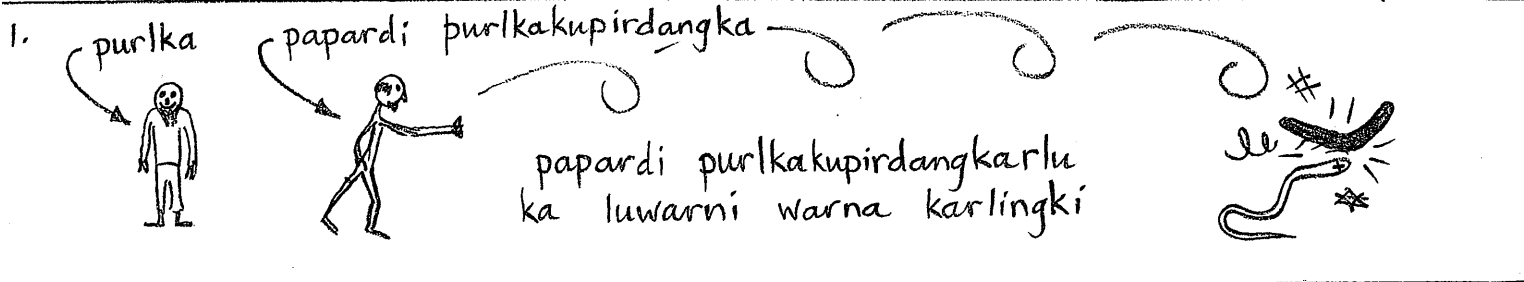 1.
purlka
papardi purlkakupirdangka
papardi purlkakupirdangkarlu
ka luwarni warna karlingki